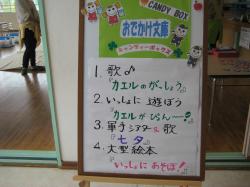 CANDY BOX
おでかけ文庫
キャンディーボックス
1. 歌♪
「カエルのがっしょう」
2. いっしょに遊ぼう
カエルがぴょん
3. 軍手シアター&歌
七夕
4. 大型絵本
いっしょにあそぼ!